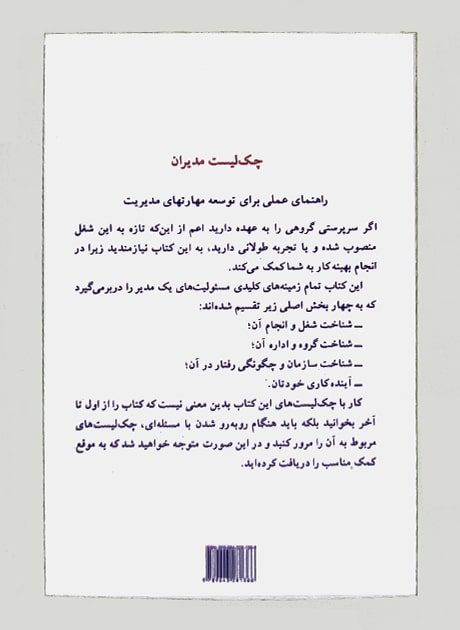 چک‌لیست مدیران
راهنمای عملی برای توسعه مهارتهای مدیریت
اگر سرپرستی گروهی را به عهده دارید اعم از این‌که تازه به این شغل
منصوب شده و یا تجربه طولانی دارید، به این کتاب نیازمندید زیرا در
انجام بهینه کار به شما کمک می‌کند.
این کتاب تمام زمینه‌های کلیدی مسئولیت‌های یک مدیر را دربرمی‌گیرد
که به چهار بخش اصلی زیر تقسیم شده‌اند:
ــ شناخت شغل و انجام آن؛
ــ شناخت گروه و اداره آن؛
ــ شناخت سازمان و چگونگی رفتار در آن؛
ــ آینده کاری خودتان.
کار با چک‌لیست‌های این کتاب بدین معنی نیست که کتاب را از اول تا
آخر بخوانید بلکه باید هنگام روبه‌رو شدن با مسئله‌ای، چک‌لیست‌های
مربوط به آن را مرور کنید و در این صورت متوجه خواهید شد که به موقع
کمک مناسب را دریافت کرده‌اید.